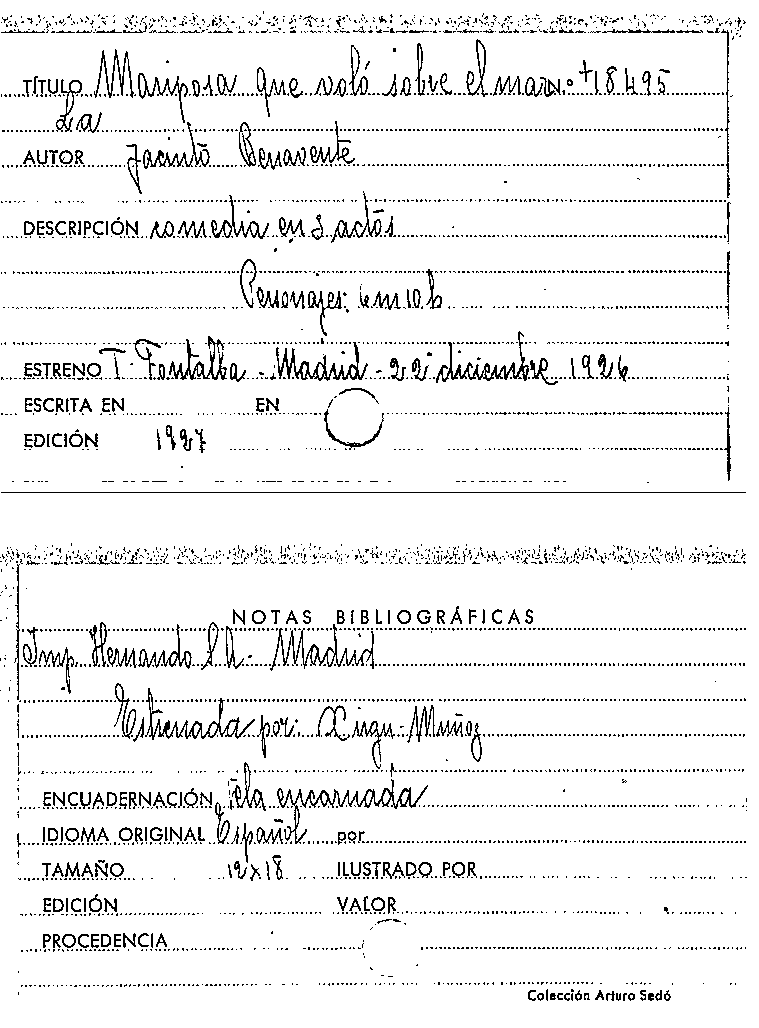 TÍTULO Mariposa que voló sobre el mar N.º +18495
La
AUTOR Jacinto Benavente
DESCRIPCIÓN comedia en 3 actos
Personajes: 6m 10h
ESTRENO T. Fontalba - Madrid - 22 diciembre 1926
ESCRITA EN EN
EDICIÓN 1927
NOTAS BIBLIOGRÁFICAS
Imp. Hernando S.A. - Madrid
Estrenada por: Xirgu-Muñoz
ENCUADERNACIÓN Tela encarnada
IDIOMA ORIGINAL Español por
TAMAÑO 12x18 ILUSTRADO POR
EDICIÓN VALOR
PROCEDENCIA
Colección Arturo Sedó